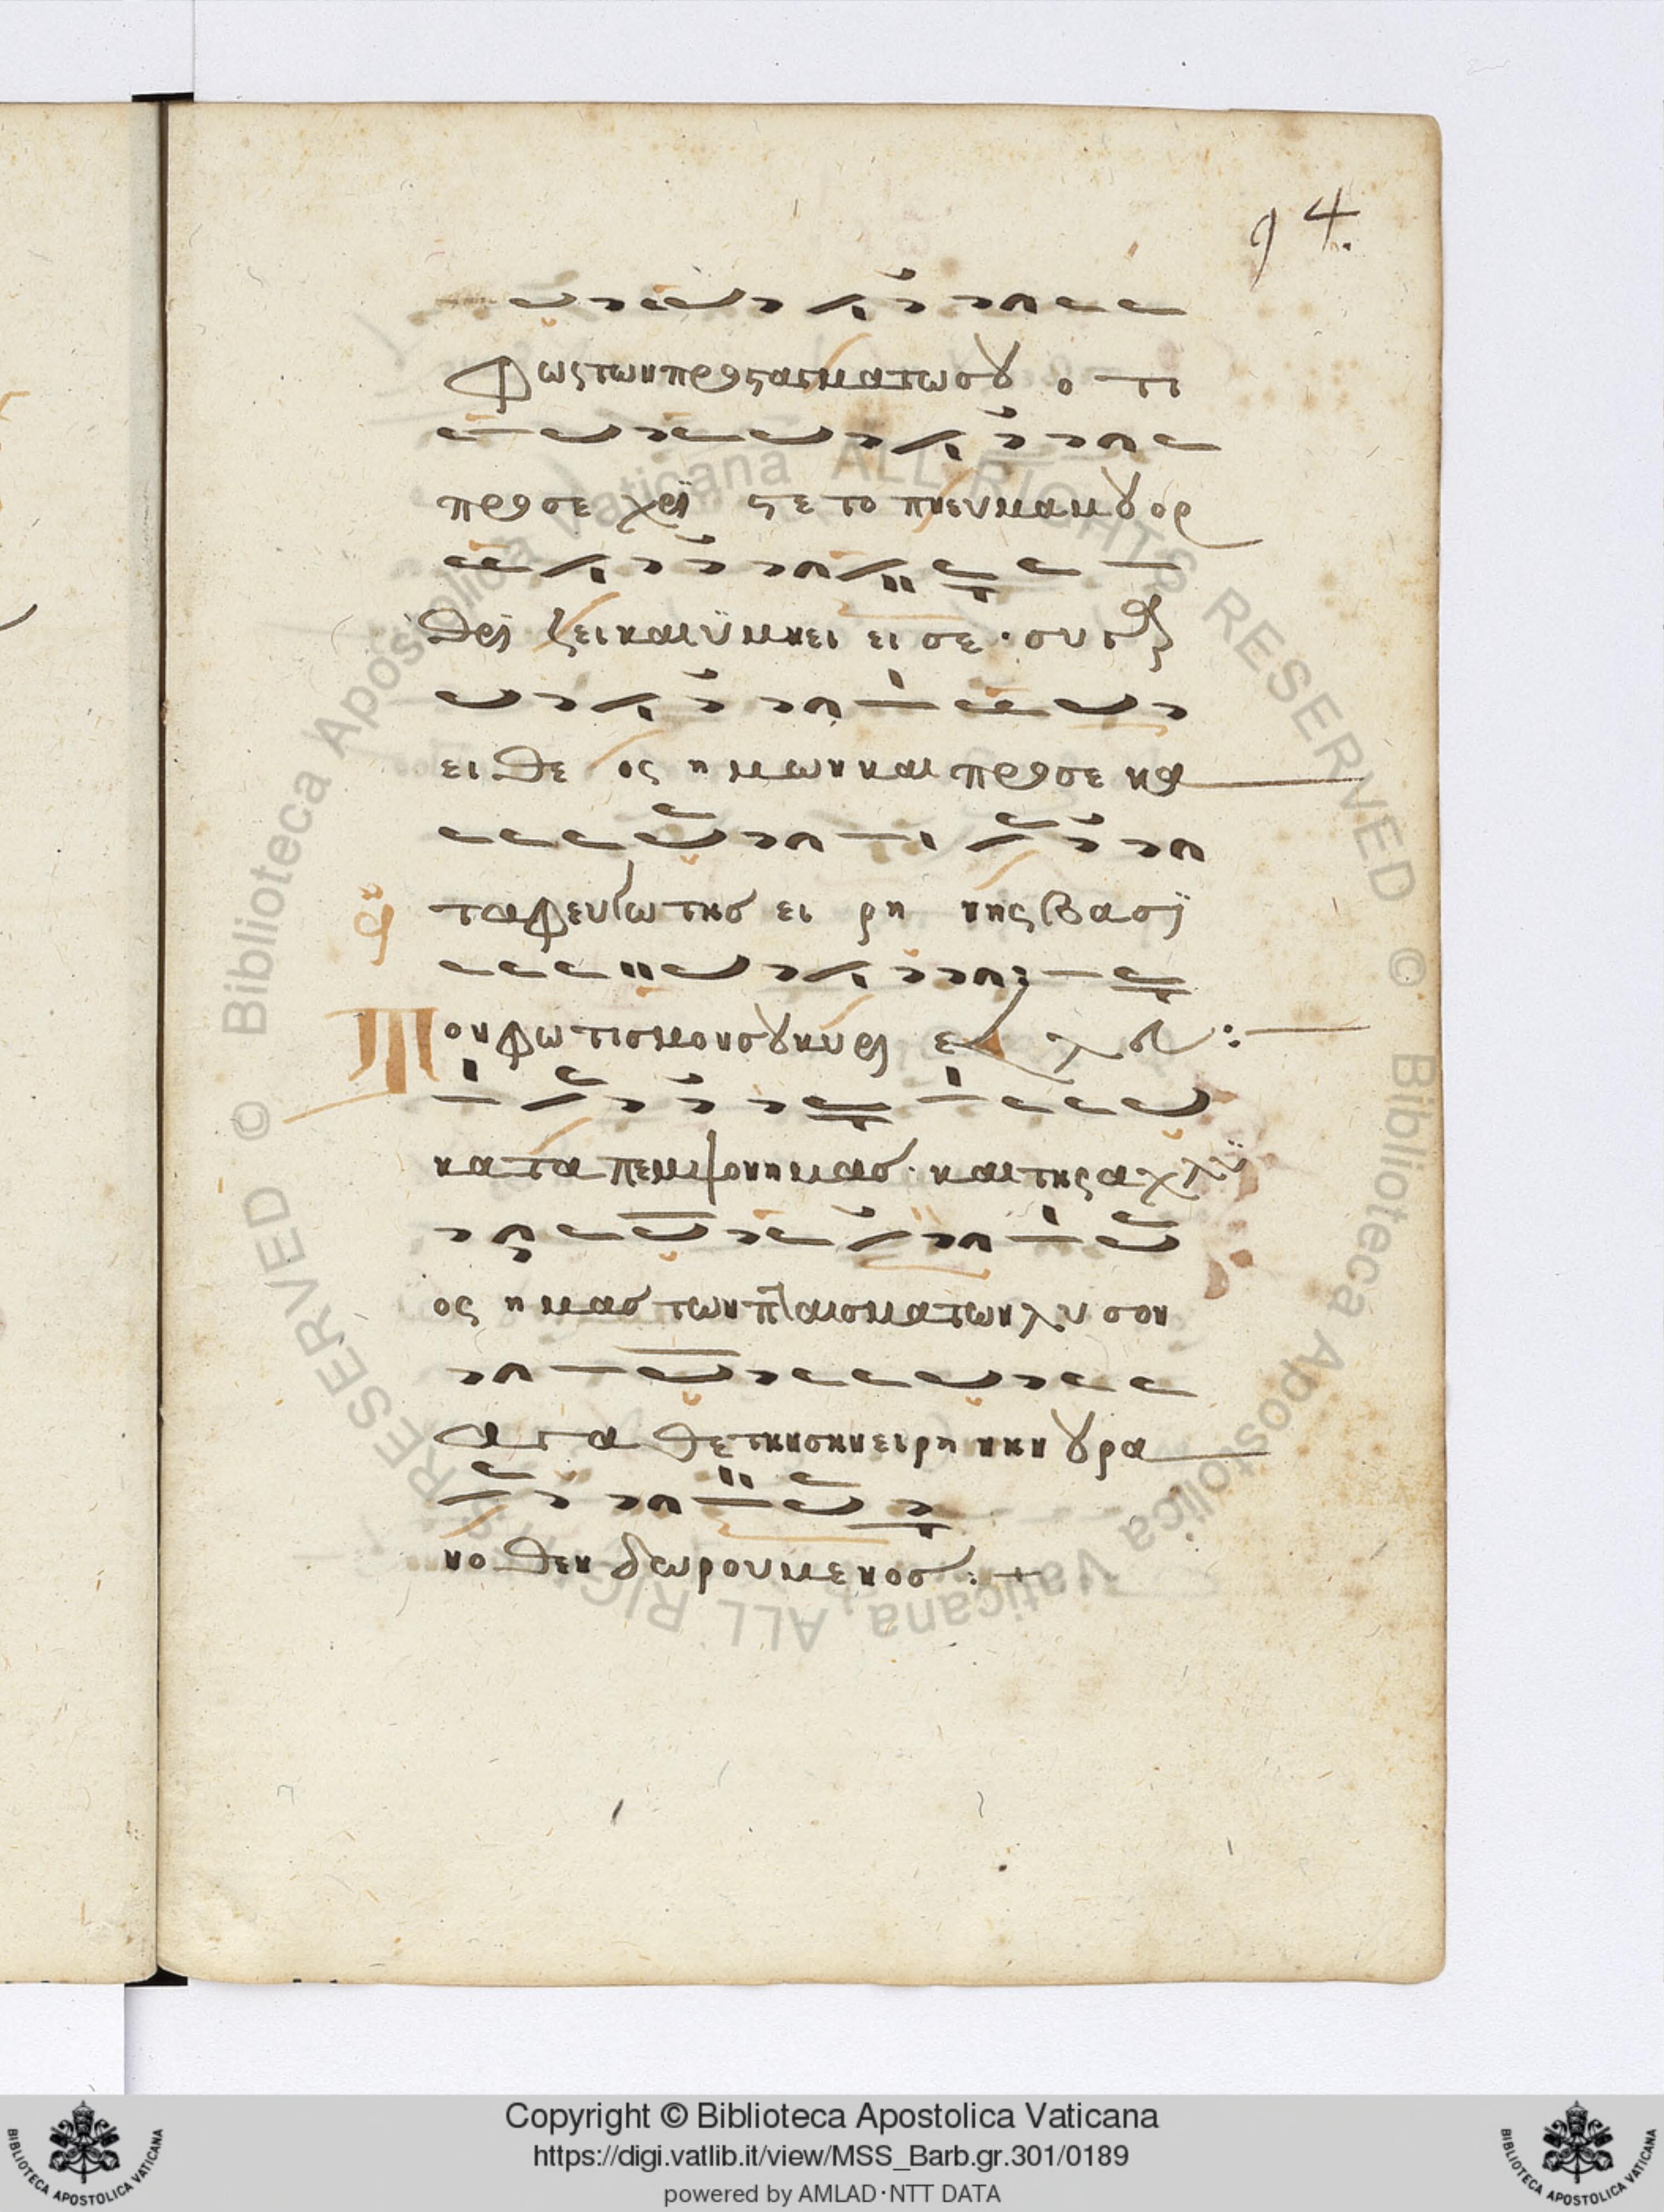 94.
φως των προςαγματω σȣ ο τι
προσε χρι ςε το πνευμα μȣ ορ
θρι ζει και ϋμνει ει σε · συ γαρ
ει θε ος η μων και προσε κα
τα φευγω της ει ρη νης βασϊ
ε ε
Τον φωτισμον σȣ κυρι ε
κατα πεμψον ημασ · και της αχλϋ
ος η μασ των πταισματων λυ σον
α γα θε την σην ειρη νην ȣρα
νο θεν δωρουμενοσ : +
© Biblioteca Apostolica Vaticana ALL RIGHTS RESERVED © Biblioteca Apostolica Vaticana, ALL RIGHTS RESERVED
Copyright © Biblioteca Apostolica Vaticana
https://digi.vatlib.it/view/MSS_Barb.gr.301/0189
powered by AMLAD·NTT DATA
BIBLIOTECA APOSTOLICA VATICANA
BIBLIOTECA APOSTOLICA VATICANA